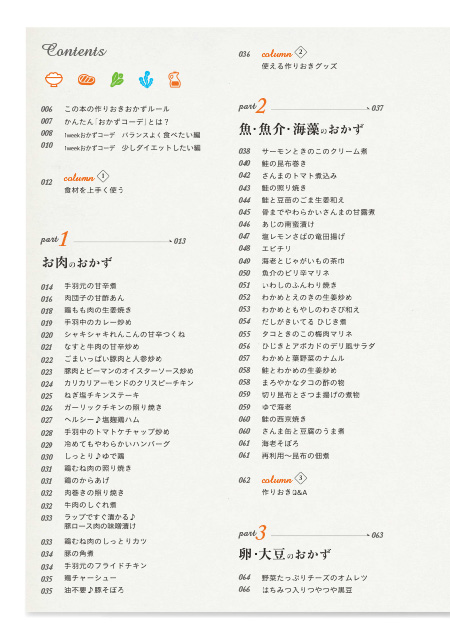 Contents
006 この本の作りおきおかずルール
007 かんたん「おかずコーデ」とは？
008 1weekおかずコーデ バランスよく食べたい編
010 1weekおかずコーデ 少しダイエットしたい編
012 column 1
食材を上手く使う
part 1 013
お肉のおかず
014 手羽元の甘辛煮
016 肉団子の甘酢あん
018 鶏もも肉の生姜焼き
019 手羽中のカレー炒め
020 シャキシャキれんこんの甘辛つくね
021 なすと牛肉の甘辛炒め
022 ごまいっぱい豚肉と人参炒め
023 豚肉とピーマンのオイスターソース炒め
024 カリカリアーモンドのクリスピーチキン
025 ねぎ塩チキンステーキ
026 ガーリックチキンの照り焼き
027 ヘルシー♪塩麹鶏ハム
028 手羽中のトマトケチャップ炒め
029 冷めてもやわらかいハンバーグ
030 しっとり♪ゆで鶏
031 鶏むね肉の照り焼き
031 鶏のからあげ
032 肉巻きの照り焼き
032 牛肉のしぐれ煮
033 ラップですぐ漬かる♪
豚ロース肉の味噌漬け
033 鶏むね肉のしっとりカツ
034 豚の角煮
034 手羽元のフライドチキン
035 鶏チャーシュー
035 油不要♪豚そぼろ
036 column 2
使える作りおきグッズ
part 2 037
魚・魚介・海藻のおかず
038 サーモンときのこのクリーム煮
040 鮭の昆布巻き
042 さんまのトマト煮込み
043 鮭の照り焼き
044 鮭と豆苗のごま生姜和え
045 骨までやわらかいさんまの甘露煮
046 あじの南蛮漬け
047 塩レモンさばの竜田揚げ
048 エビチリ
049 海老とじゃがいもの茶巾
050 魚介のピリ辛マリネ
051 いわしのふんわり焼き
052 わかめとえのきの生姜炒め
053 わかめともやしのわさび和え
054 だしがきいてる ひじき煮
055 タコときのこの梅肉マリネ
056 ひじきとアボカドのデリ風サラダ
057 わかめと華野菜のナムル
058 鮭とわかめの生姜炒め
058 まろやかなタコの酢の物
059 切り昆布とさつま揚げの煮物
059 ゆで海老
060 鮭の西京焼き
060 さんま缶と豆腐のうま煮
061 海老そぼろ
061 再利用〜昆布の佃煮
062 column 3
作りおきQ&A
part 3 063
卵・大豆のおかず
064 野菜たっぷりチーズのオムレツ
066 はちみつ入りつやつや黒豆